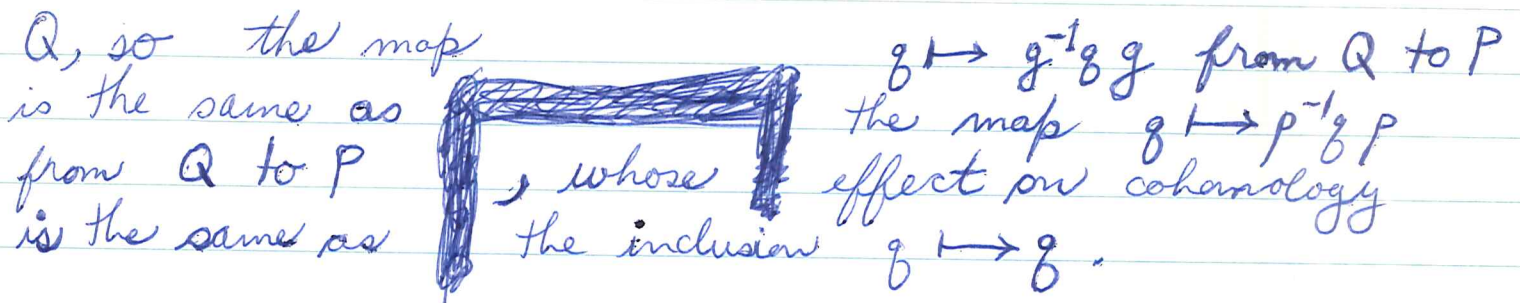 Q, so the map q ↦ g⁻¹qg from Q to P
is the same as the map q ↦ p⁻¹qp
from Q to P, whose effect on cohomology
is the same as the inclusion q ↦ q.